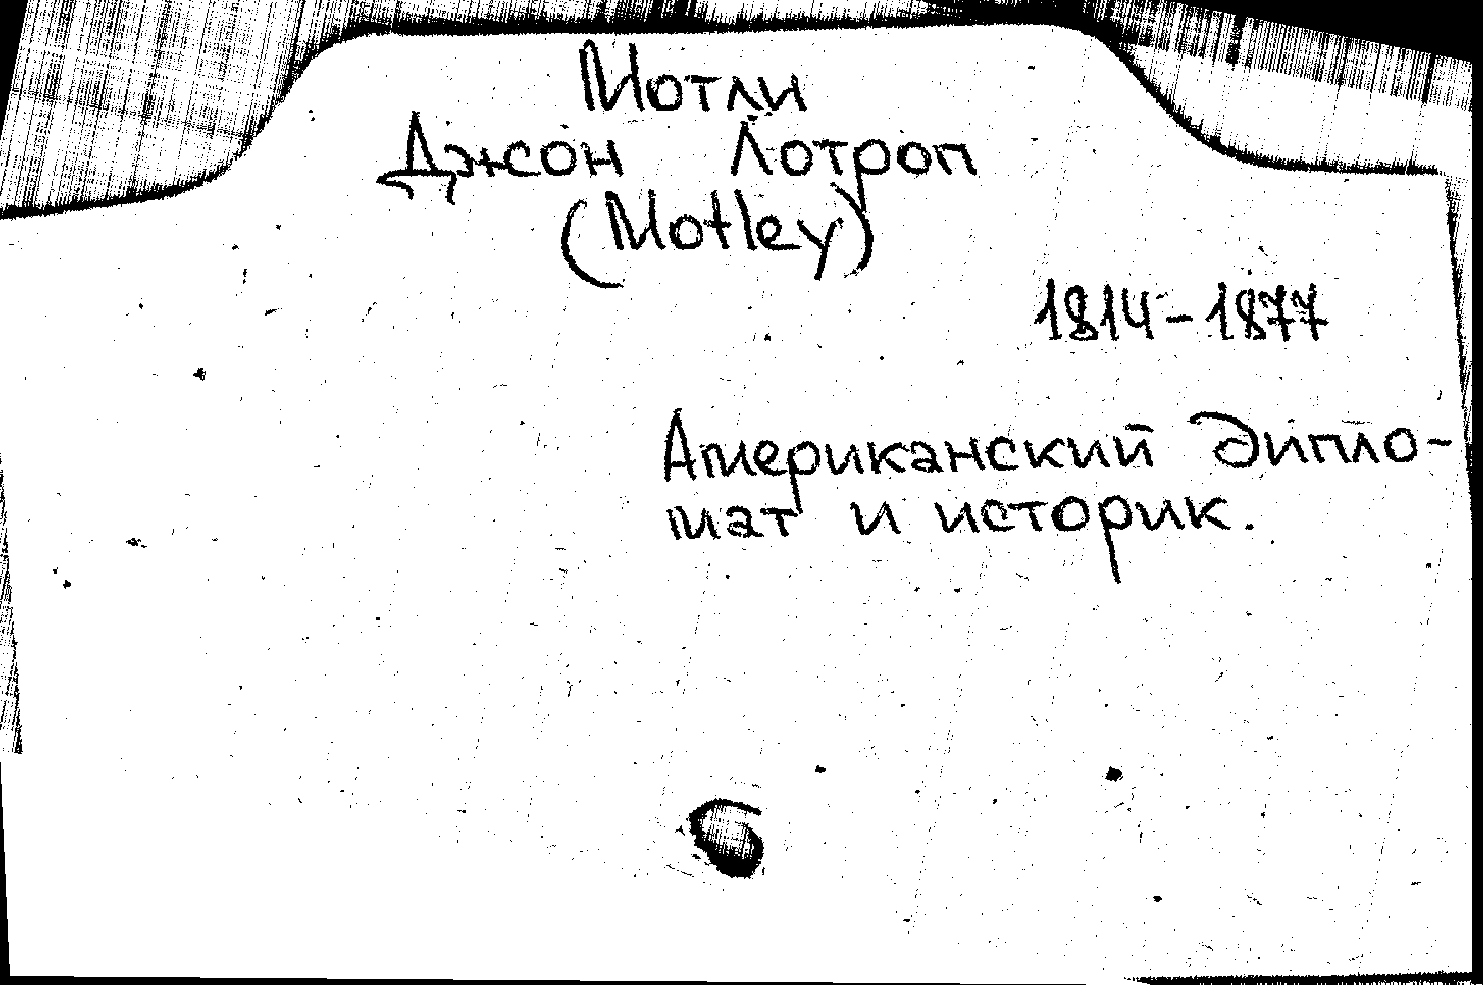 Мотли
Джон Лотроп
(Motley)
1814-1877
Американский дипло-
мат и историк.